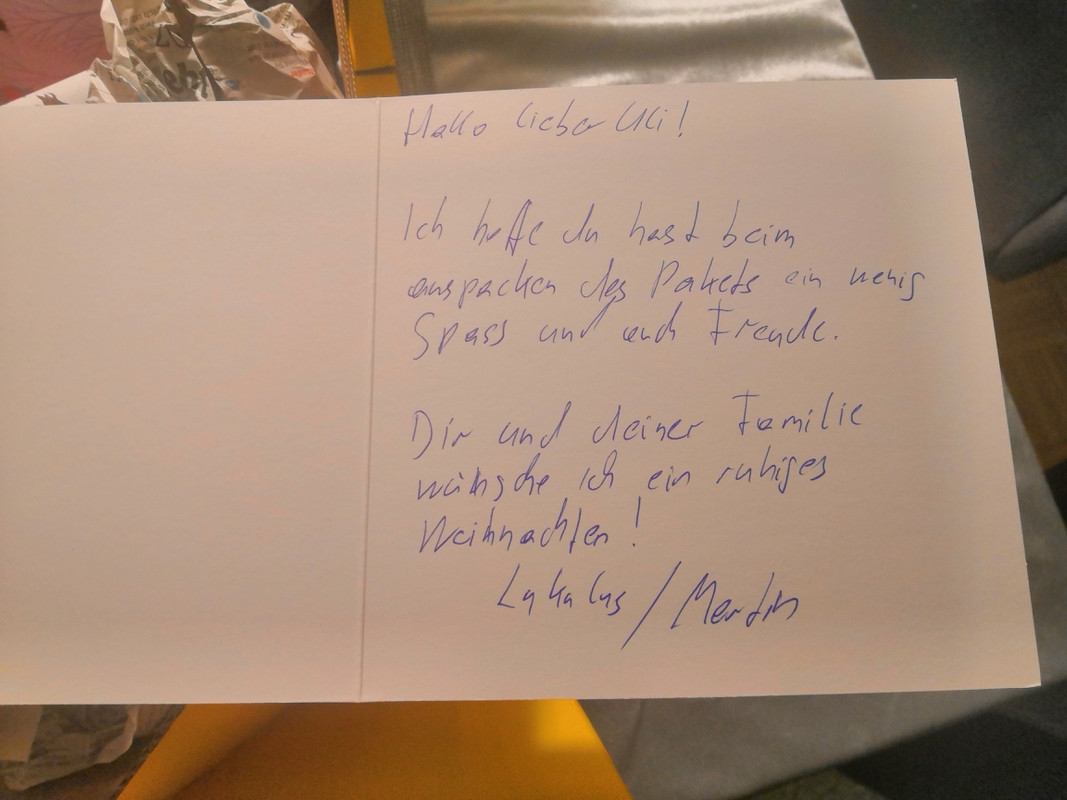 Hallo lieber Uli!
Ich hoffe du hast beim
auspacken des Pakets ein wenig
Spass und auch Freude.
Dir und deiner Familie
wünsche ich ein ruhiges
Weihnachten!
/ Martin